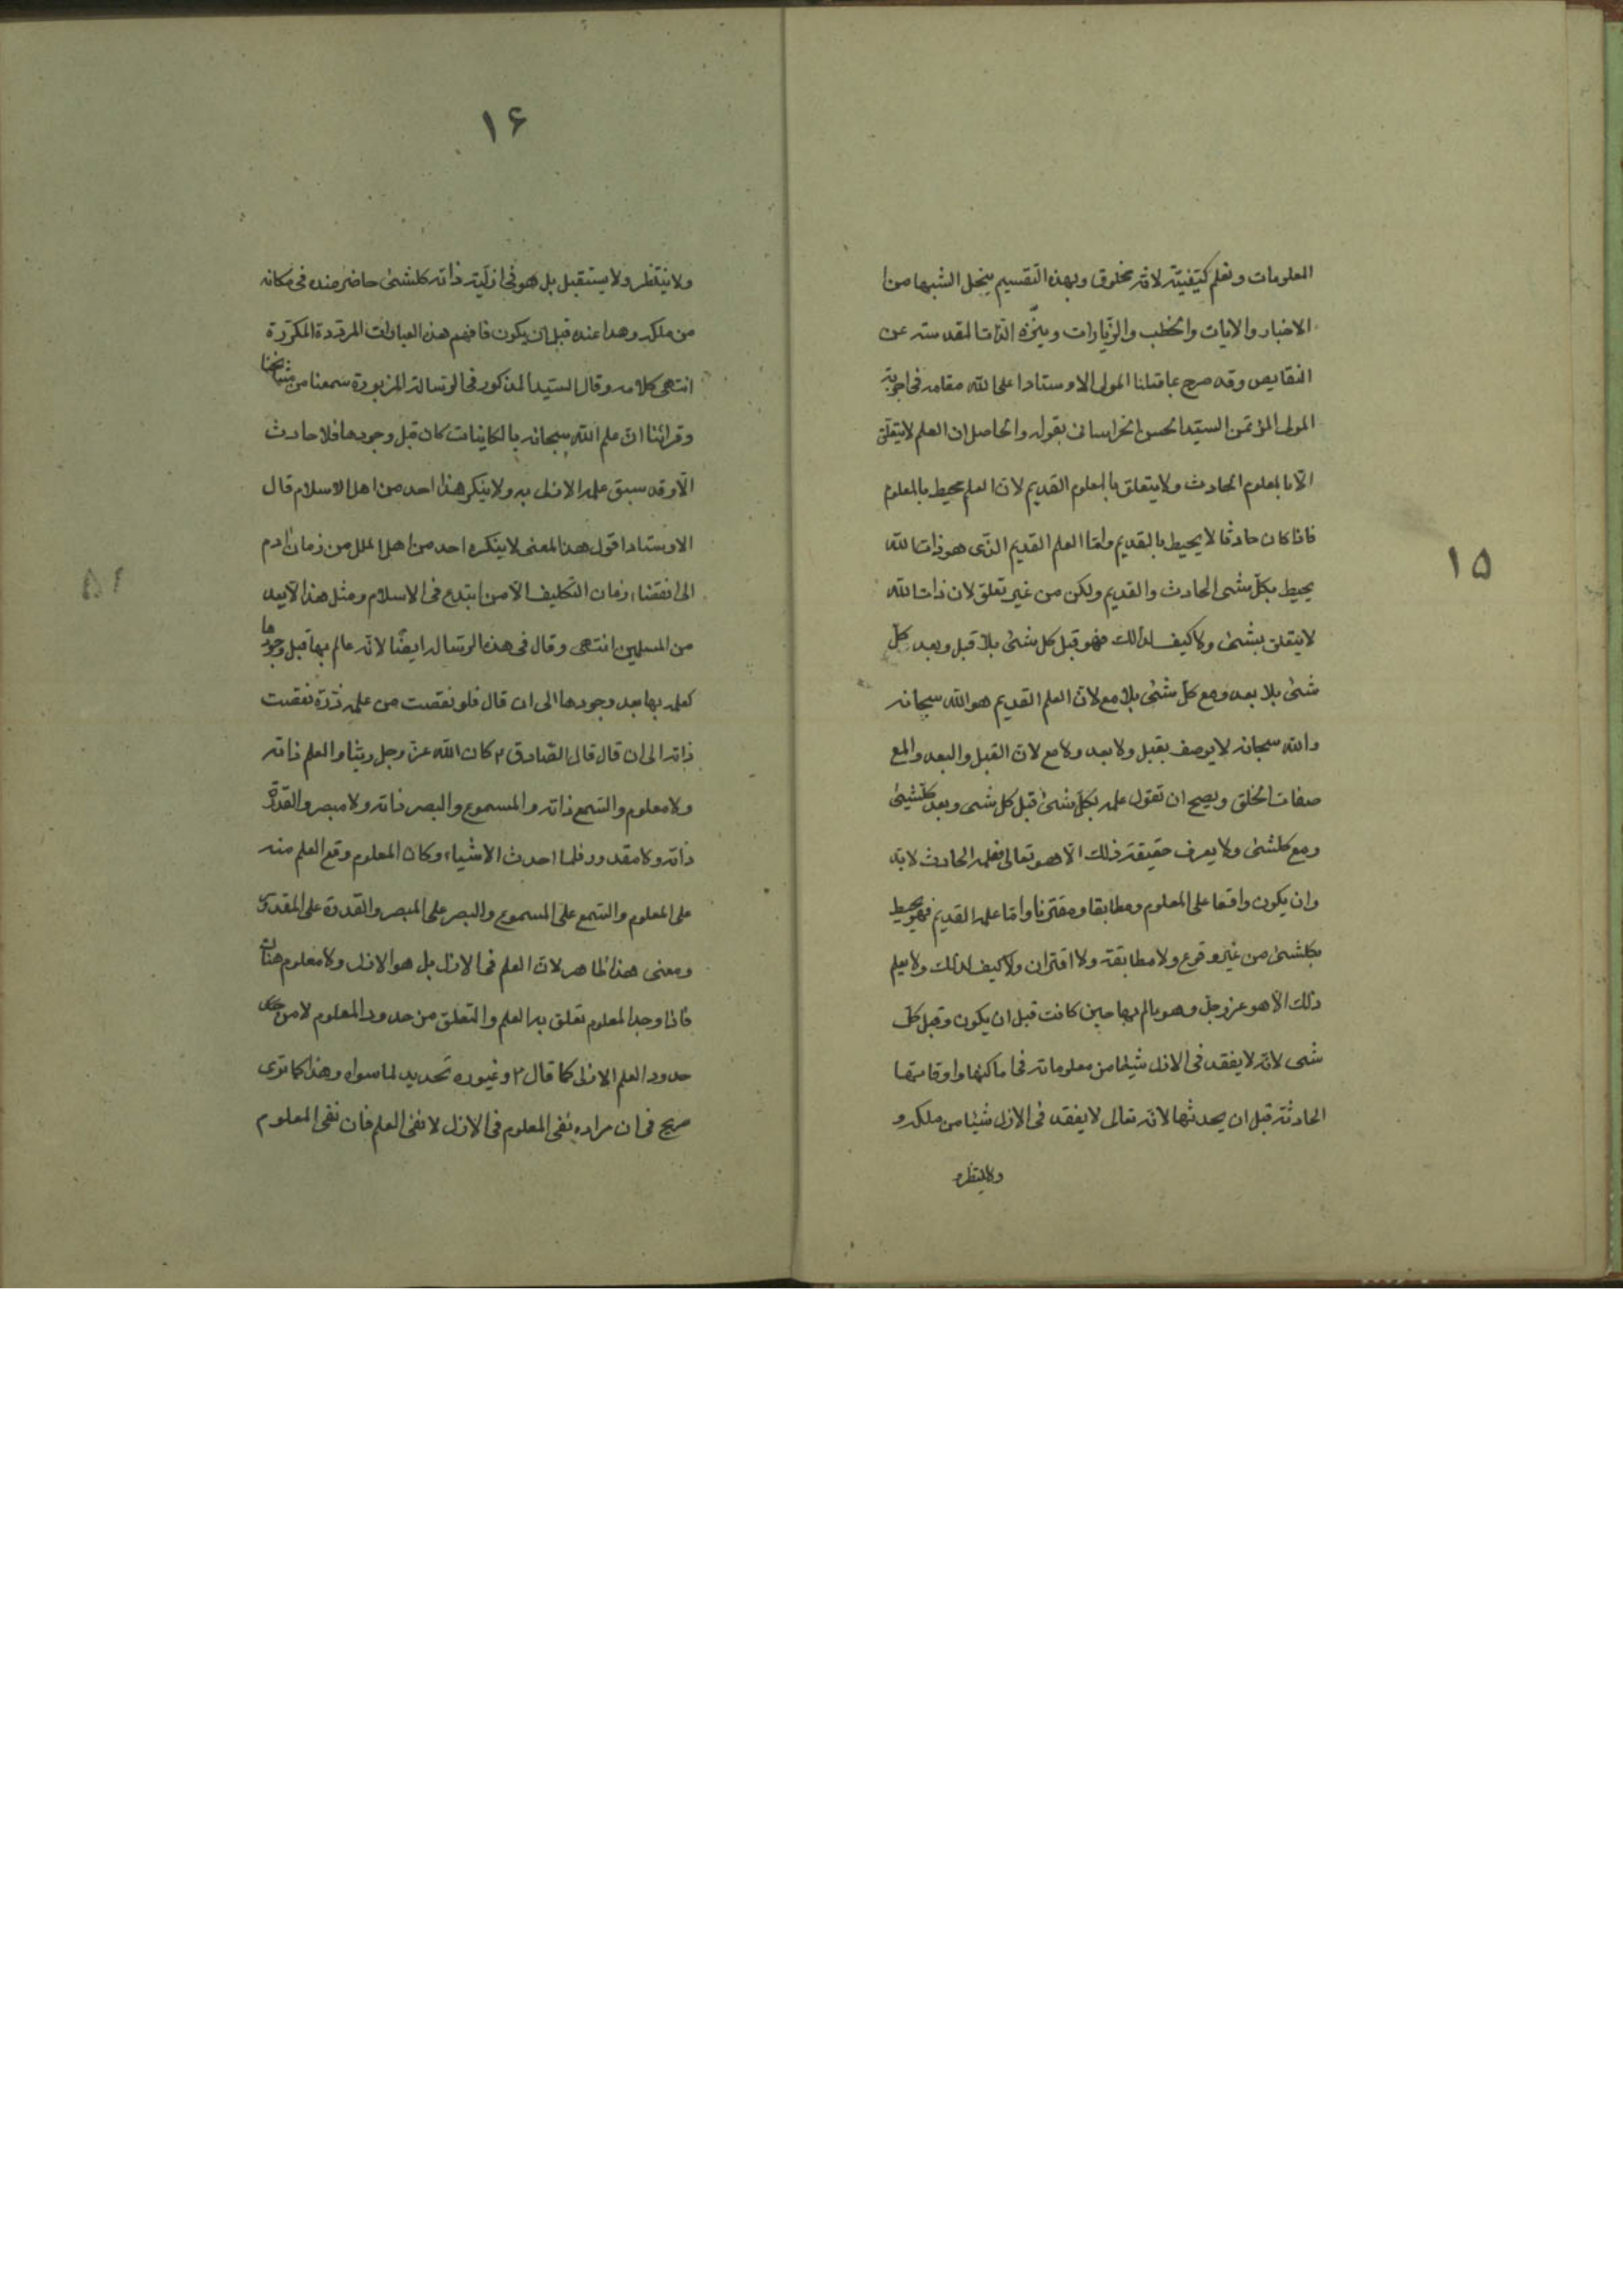 ١٥
المعلومات ونعلم كيفيّته لانّه مخلوق وبهذه التقسيم ينحل الشبها من
الاخبار والايات والخطب والزّيارات وينزّه الذّات المقدسته عن
النقايص وقد صرح بما قلنا المولى الاوستاد اعلى الله مقامه فى اجوبة
المولى المؤتمن السيّد الحسن الخراسانى بقوله والحاصل ان العلم لايتعلّق
الّا بالمعلوم الحادث ولايتعلق بالمعلوم القديم لانّ العلم محيط بالمعلوم
فاذا كان حادثا لايحيط بالقديم وامّا العلم القديم الذّى هو ذات الله
يحيط بكلّ شىء الحادث والقديم ولكن من غير تعلق لانّ ذات الله
لايتعلق بشىء ولاكيف لذلك فهو قبل كل شىء بلا قبل وبعد كلّ
شىء بلا بعد ومع كلّ شىء بلا مع لانّ العلم القديم هو الله سبحانه
والله سبحانه لايوصف بقبل ولا بعد ولامع لانّ القبل والبعد والمع
صفات الخلق ويصح ان تقول علمه بكلّ شىء قبل كل شىء وبعد كلشىء
ومع كلشىء ولايعرف حقيقة ذلك الّا هو تعالى فعلمه الحادث لابدّ
وان يكون واقعا على المعلوم ومطابقا ومقترنا وامّا علمه القديم فهو يحيط
بكلشىء من غير وقوع ولا مطابقة ولا اقتران ولاكيف لذلك ولايعلم
ذلك الّا هو عزوجلّ وهو عالم بها حين كانت قبل ان يكون وقبل كلّ
شىء لانّه لايفقد فى الازل شيئا من معلوماته فى اماكنها واوقاتها
الحادثة قبل ان يحدثها لانّه تعالى لايفقد فى الازل شيئا من ملكه و
ولاينتظر
١۶
ولاينتظر ولايستقبل بل هو فى ازليّة ذاته كلشىء حاضر عنده فى مكانه
من ملكه وهذا عنده قبل ان يكون فافهم هذه العبارات المردّدة المكرّرة
انتهى كلامه وقال السيّد المذكور فى الرّسالة المزبورة سمعنا من مشايخنا
وقرائنا انّ علم الله سبحانه بالكاينات كان قبل وجودها فلا حادث
الّا وقد سبق علمه الازلى به ولاينكر هذا احد من اهل الاسلام قال
الاوستاد اقول هذا المعنى لاينكره احد من اهل الملل من زمان ادم
الى انقضاء زمان التّكليف الّا من ابتدع فى الاسلام ومثل هذا لايعد
من المسلمين انتهى وقال فى هذه الرّسالة ايضًا لانّه عالم بها قبل وجودها
كعلمه بها بعد وجودها الى ان قال فلو نقصت من علمه ذرّة نقصت
ذاته الى ان قال قال الصّادق ٤ كان الله عزّ وجل ربّنا والعلم ذاته
ولا معلوم والسّمع ذاته والمسموع والبصر ذاته ولا مبصر والقدرة
ذاته ولا مقدور فلما احدث الاشياء وكان المعلوم وقع العلم منه
على المعلوم والسّمع على المسموع والبصر على المبصر والقدرة على المقدور
ومعنى هذا ظاهر لانّ العلم فى الازل بل هو الازل ولا معلوم هناك
فاذا وجد المعلوم تعلق به العلم والتعلق من حدود المعلوم لا من
حدود العلم الازلى كما قال ٤ وغيوره تحديد لما سواه وهذا كما ترى
صريح فى ان مراده نفى المعلوم فى الازل لا نفى العلم فان نفى المعلوم